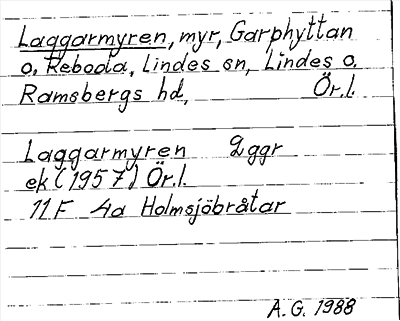 Laggarmyren, myr, Garphyttan
o. Reboda, Lindes sn, Lindes o.
Ramsbergs hd, Ör.l.
Laggarmyren 2ggr
ek (1957) Ör.l.
11F 4a Holmsjöbråtar
A.G. 1988